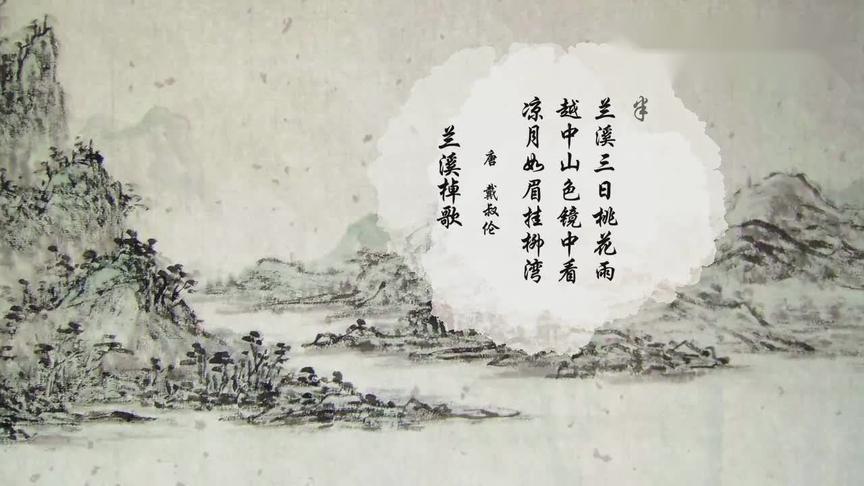 兰溪棹歌
唐 戴叔伦
凉月如眉挂柳湾
越中山色镜中看
兰溪三日桃花雨
半